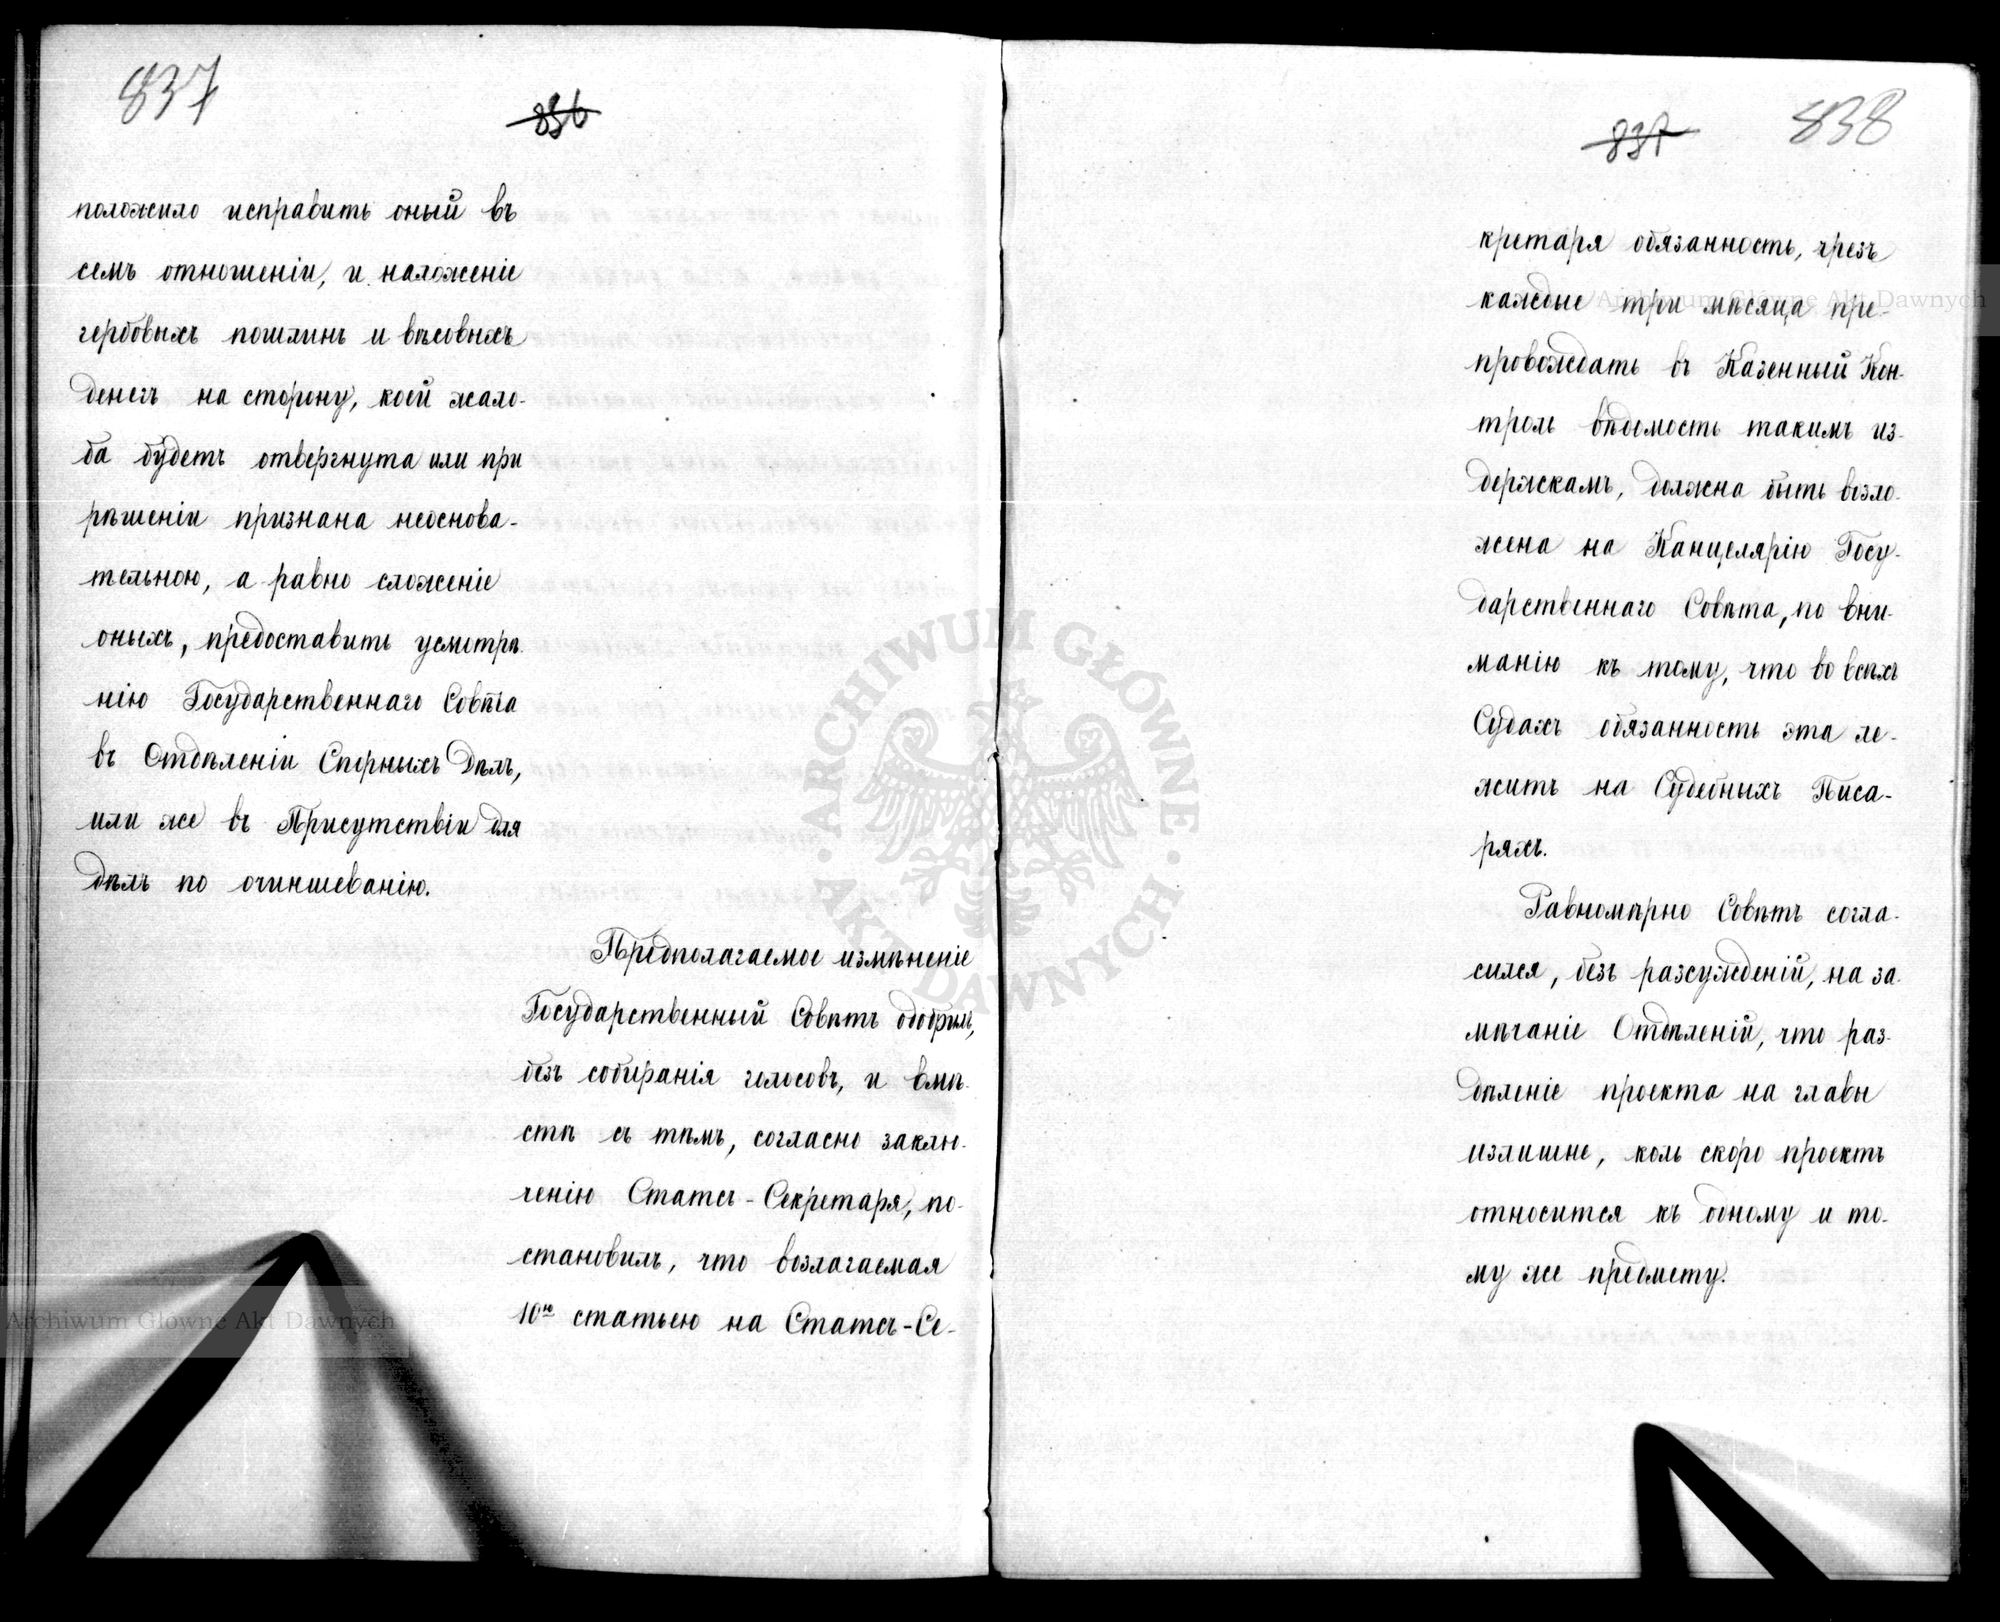 837
836
положило исправить оный въ
семъ отношеніи, и наложеніе
гербовыхъ пошлинъ и вѣсовыхъ
денегъ на сторону, коей жало-
ба будетъ отвергнута или при
рѣшеніи признана неоснова-
тельною, а равно сложеніе
оныхъ, предоставить усмотрѣ-
нію Государственнаго Совѣта
въ Отдѣленіи Спорныхъ Дѣлъ,
или же въ Присутствіи для
дѣлъ по очиншеванію.
Предполагаемое измѣненіе
Государственный Совѣтъ одобрилъ,
безъ собиранія голосовъ, и вмѣ-
стѣ съ тѣмъ, согласно заклю-
ченію Статсъ-Секретаря, по-
становилъ, что возлагаемая
10ю статьею на Статсъ-Се-
837
838
кретаря обязанность, чрезъ
каждые три мѣсяца пре-
провождать въ Казенный Кон-
троль вѣдомость такимъ из-
держкамъ, должна быть возло-
жена на Канцелярію Госу-
дарственнаго Совѣта, по вни-
манію къ тому, что во всѣхъ
Судахъ обязанность эта ле-
житъ на Судебныхъ Писа-
ряхъ.
Равномѣрно Совѣтъ согла-
сился, безъ разсужденій, на за-
мѣчаніе Отдѣленій, что раз-
дѣленіе проекта на главы
излишне, коль скоро проектъ
относится къ одному и то-
му же предмету.
Archiwum Główne Akt Dawnych
ARCHIWUM GŁÓWNE
AKT DAWNYCH
Archiwum Główne Akt Dawnych